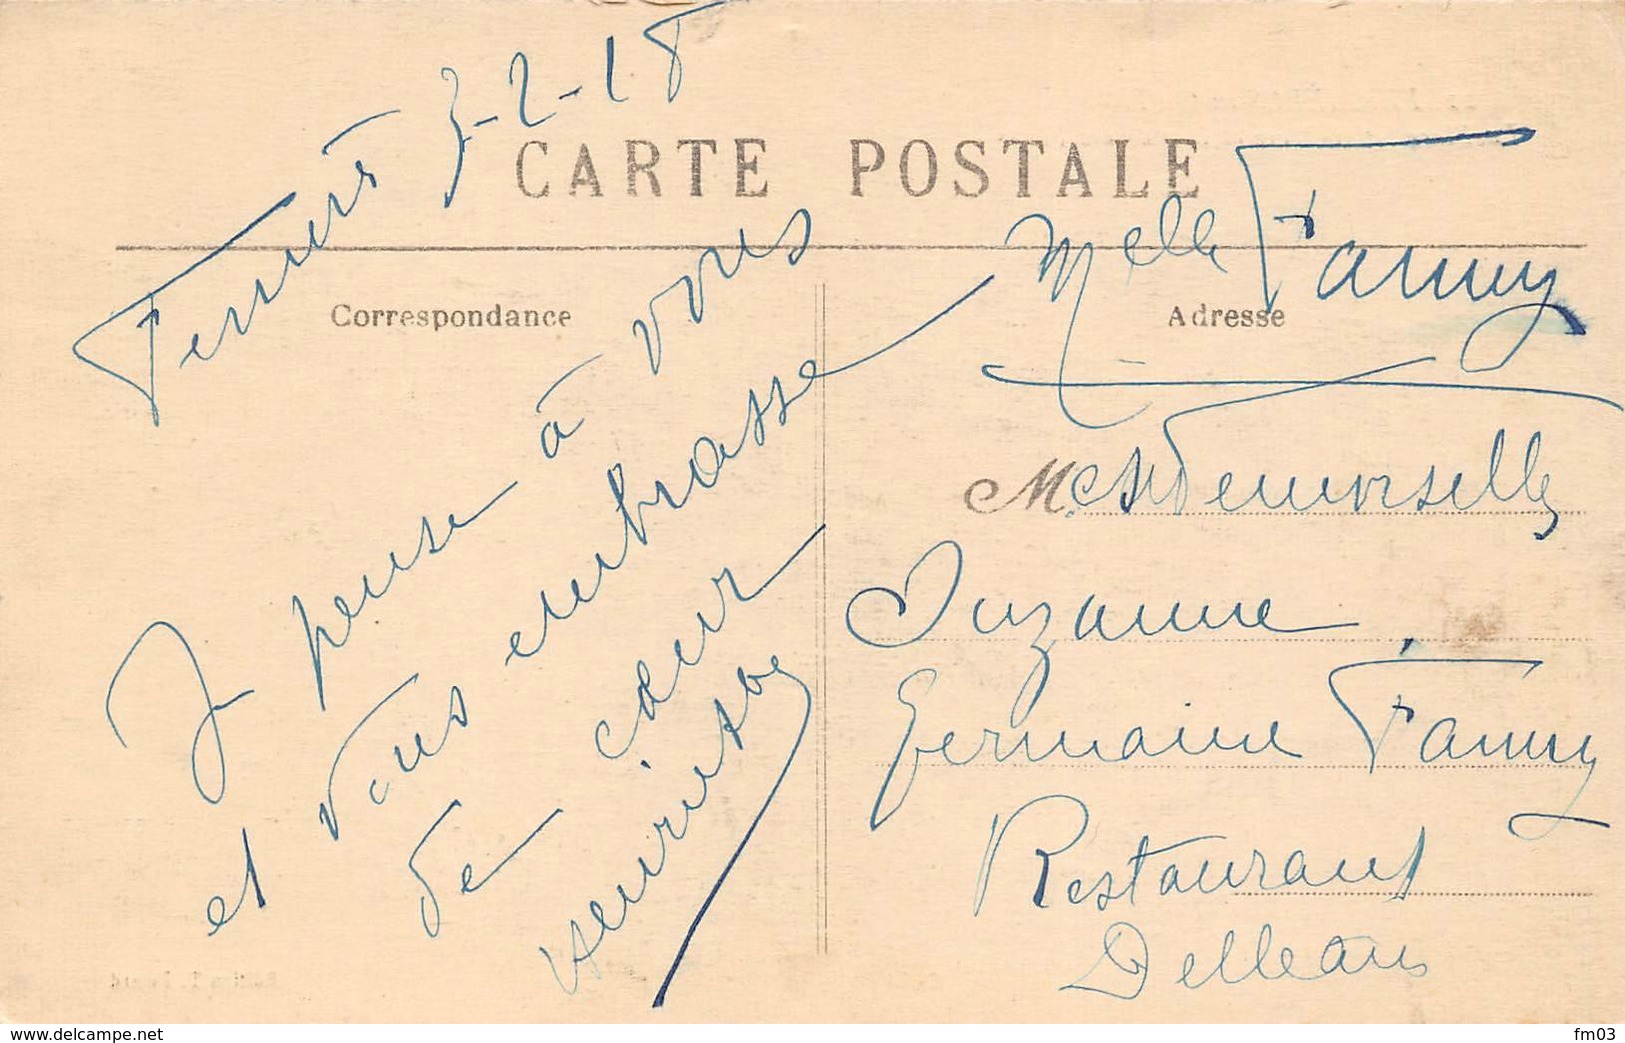 3-2-18
CARTE POSTALE
Correspondance
Adresse
Je pense à vous
et vous embrasse
de cœur
Melle Fanny
Mesdemoiselles
Suzanne,
Germaine Fanny
Restaurant
www.delcampe.net
fm03